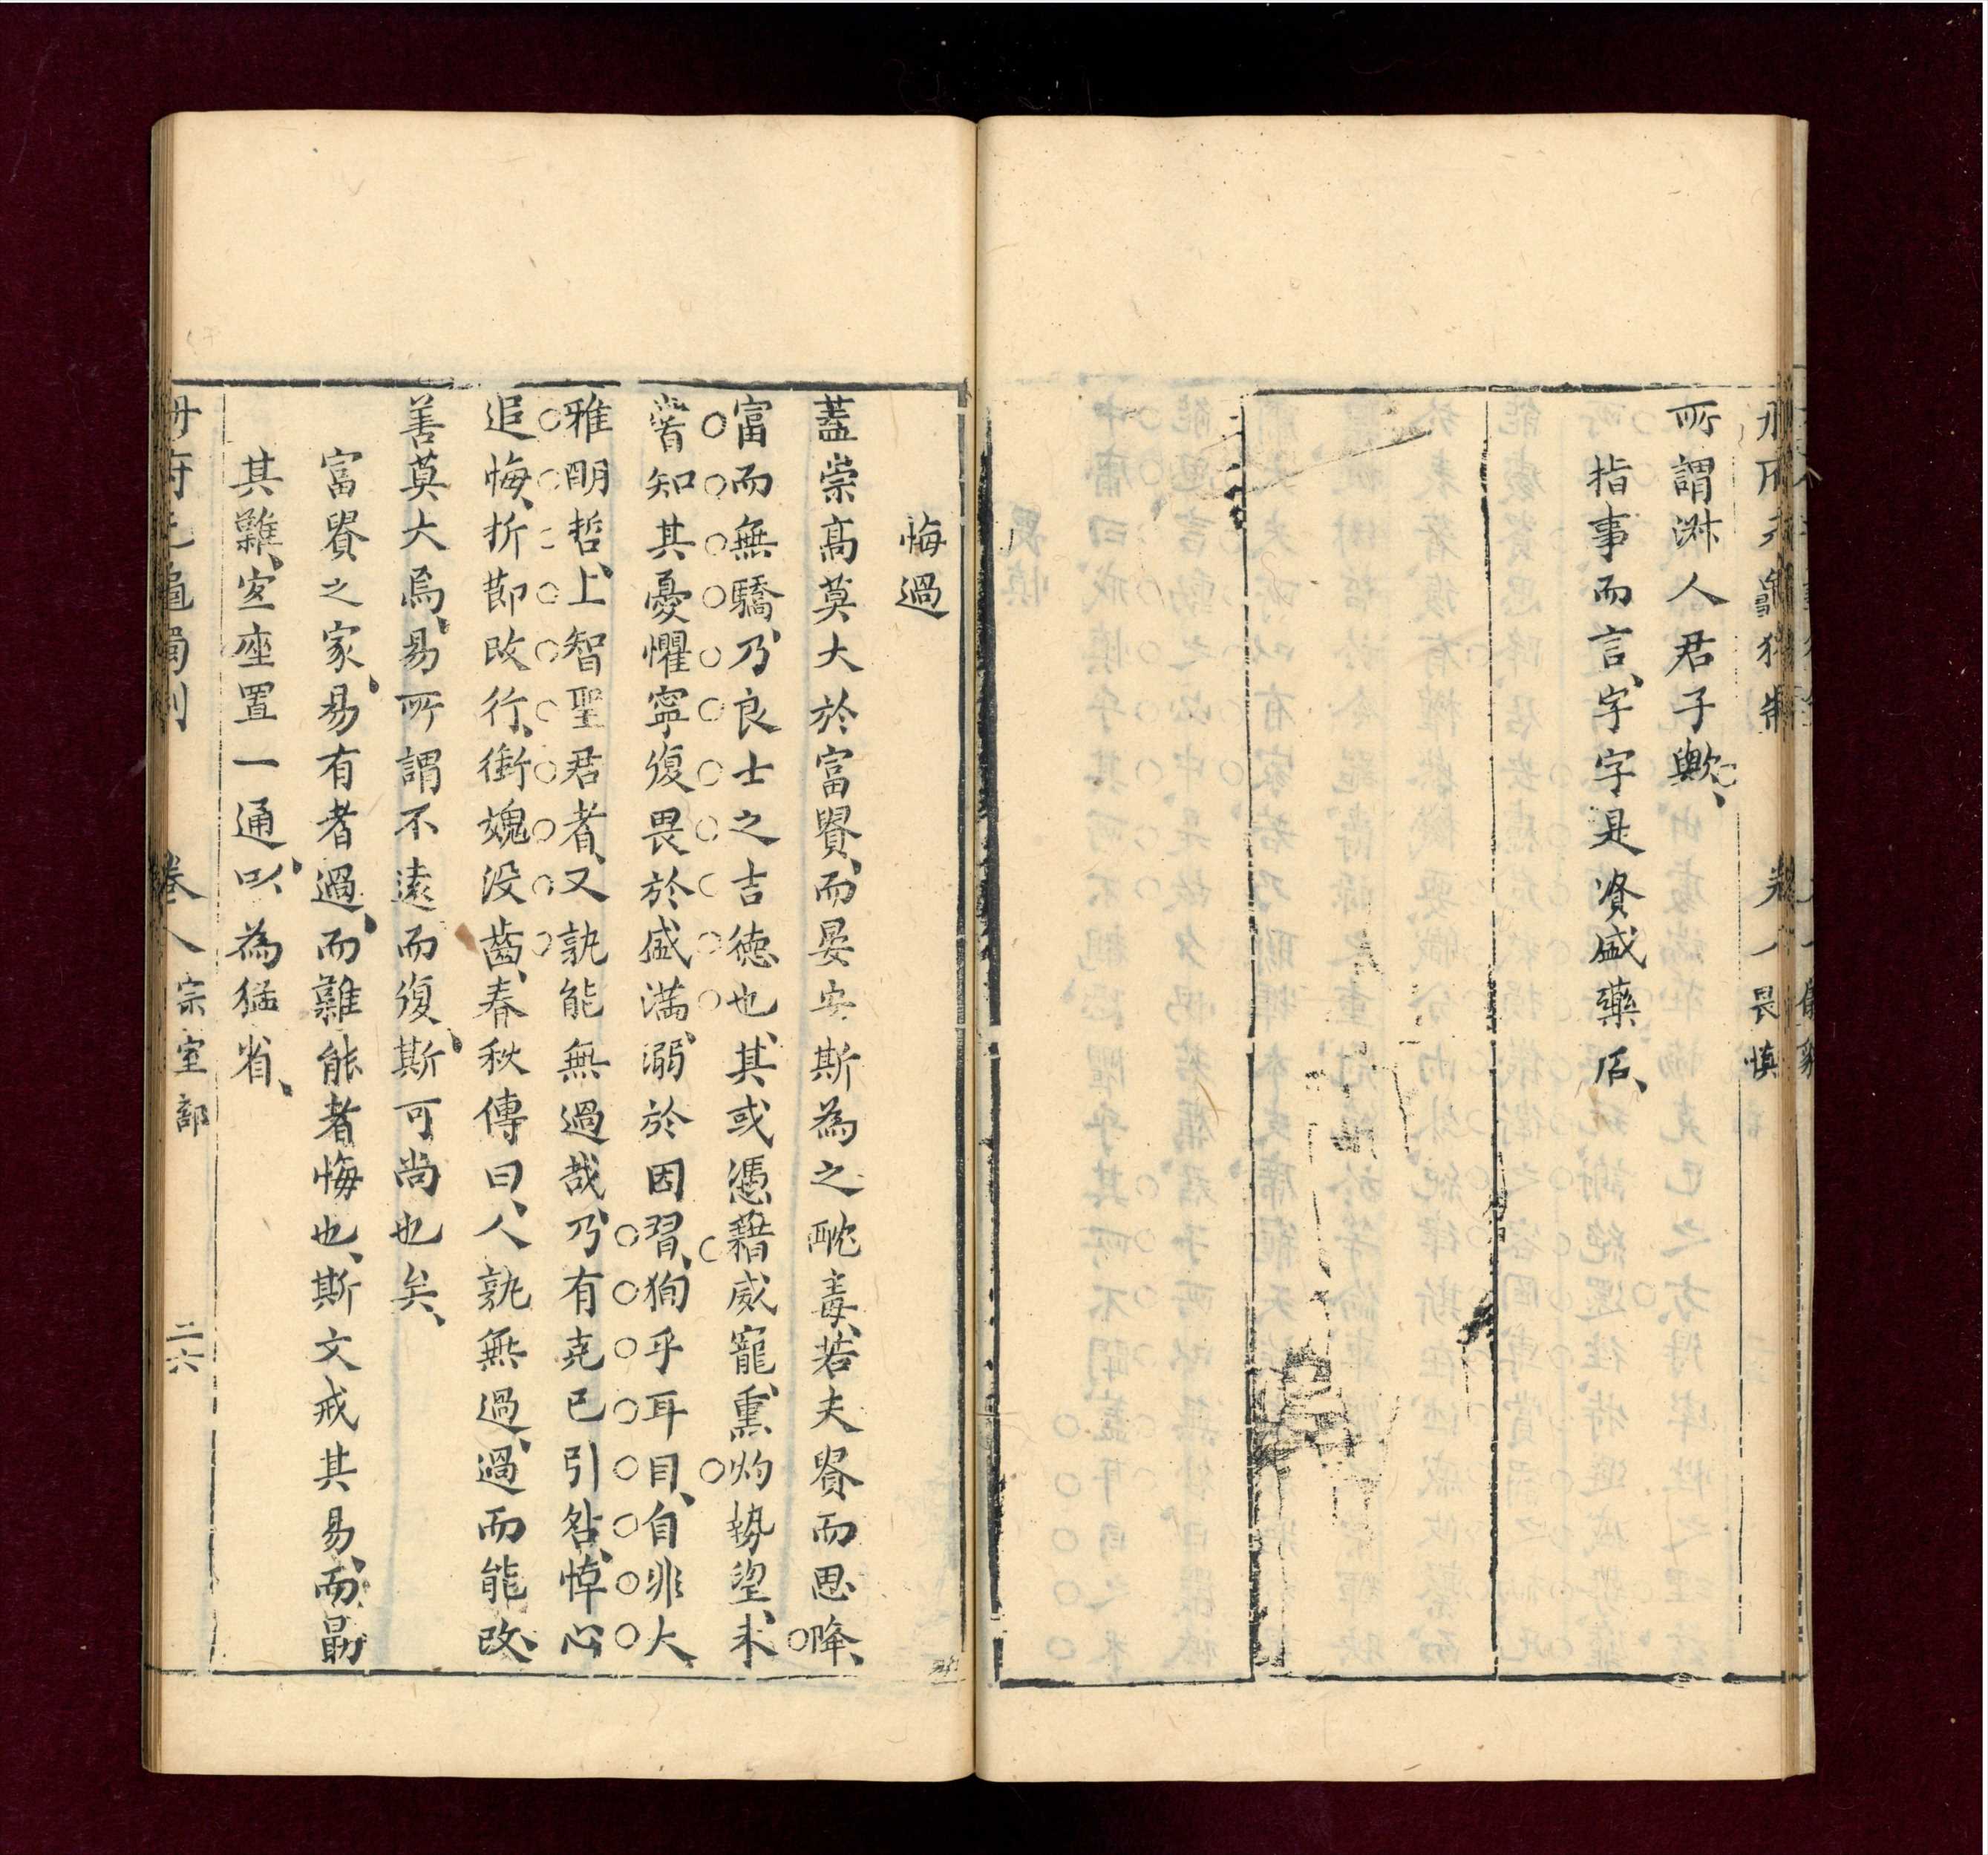 册府元龜獨制 卷八 畏慎
所謂淋人君子歟、
指事而言、字字是資盛藥石、
悔過
蓋崇高莫大於富貴、而晏安斯為之酖毒、若夫貴而思降、
富而無驕、乃良士之吉德也、其或憑藉威寵、熏灼勢望、未
嘗知其憂懼、寧復畏於盛滿、溺於因習、狥乎耳目、自非大
雅明哲、上智聖君者、又孰能無過哉、乃有克已引咎、悼心
追悔、折節改行、銜媿没齒、春秋傳曰、人孰無過、過而能改、
善莫大焉、易所謂不遠而復、斯可尚也矣、
富貴之家、易有者過、而難能者悔也、斯文戒其易、而勗
其難、宜座置一通、以為猛省、
册府元龜獨制 卷八 宗室部 二六